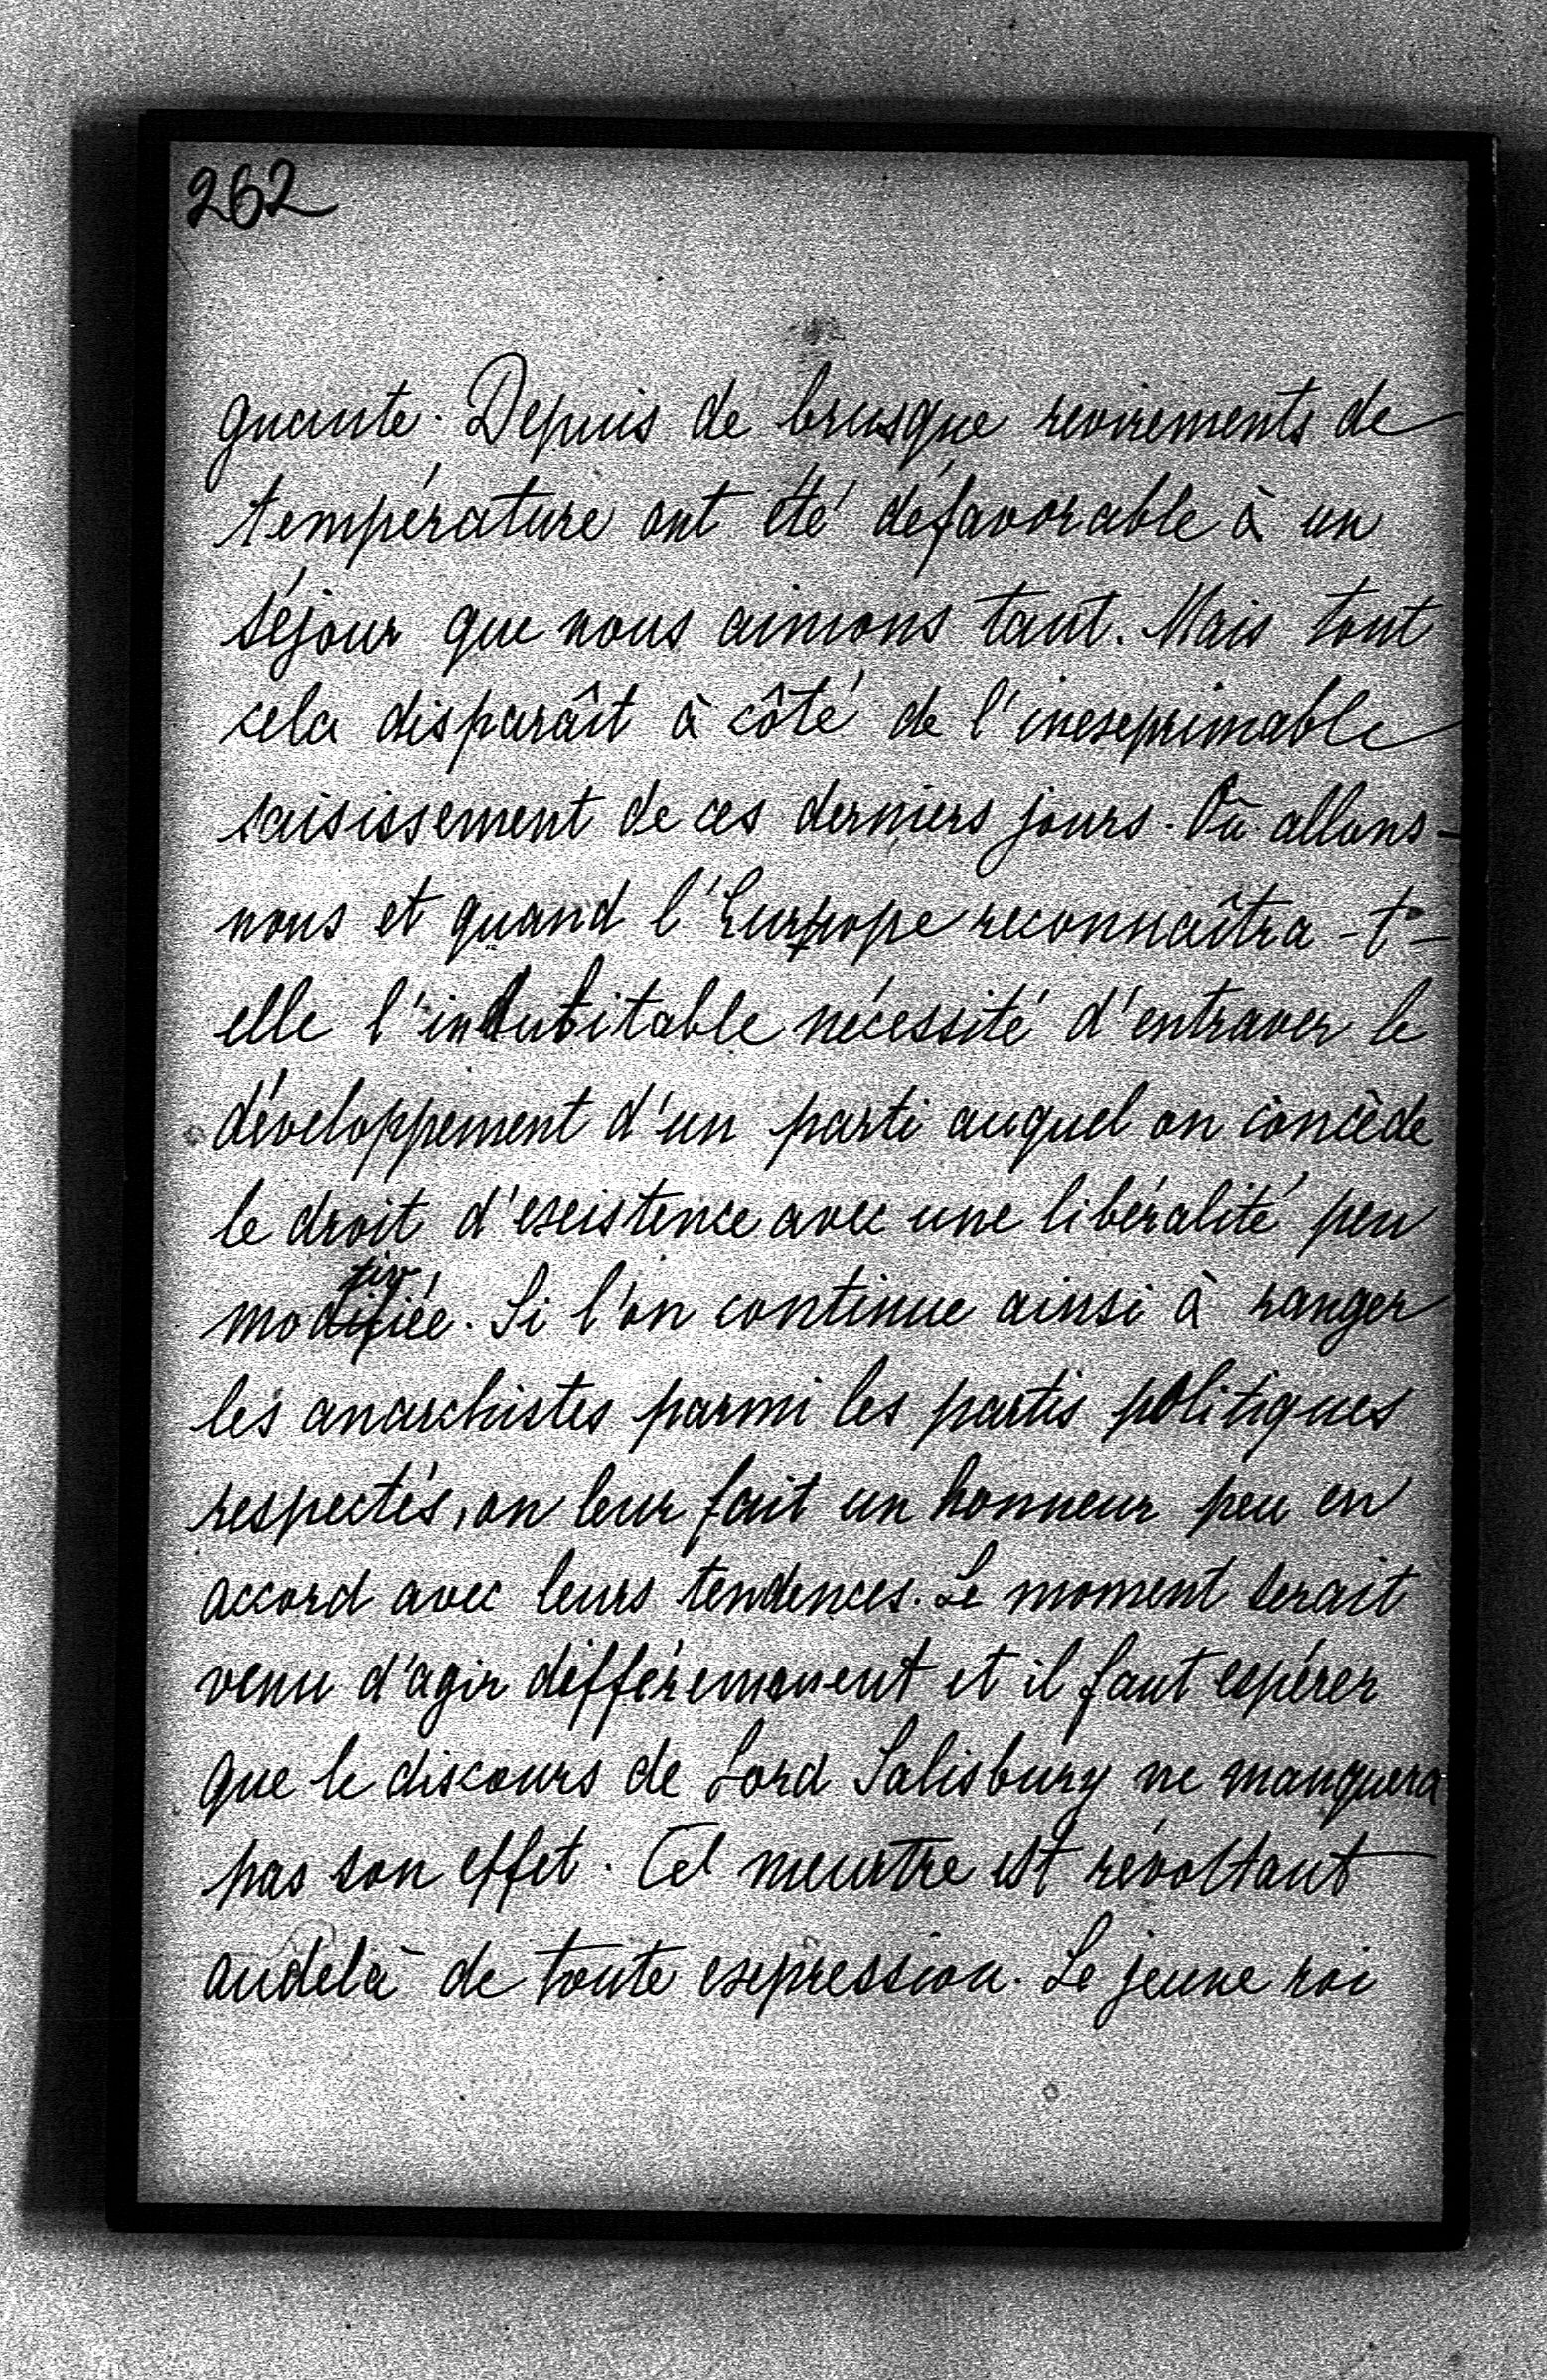 262
guante. Depuis de brusque revirements de
température ont été défavorable à un
séjour que nous aimons tant. Mais tout
cela disparaît à côté de l'inexprimable
saisissement de ces derniers jours. Où allons-
nous et quand l'Europe reconnaîtra-t-
elle l'indubitable nécessité d'entraver le
développement d'un parti auquel on concède
le droit d'existence avec une libéralité peu
motivée. Si l'on continue ainsi à ranger
les anarchistes parmi les partis politiques
respectés, on leur fait un honneur peu en
accord avec leurs tendences. Le moment serait
venu d'agir différemment et il faut espérer
que le discours de Lord Salisbury ne manquera
pas son effet. Cet meurtre est révoltant
audelà de toute expression. Le jeune roi